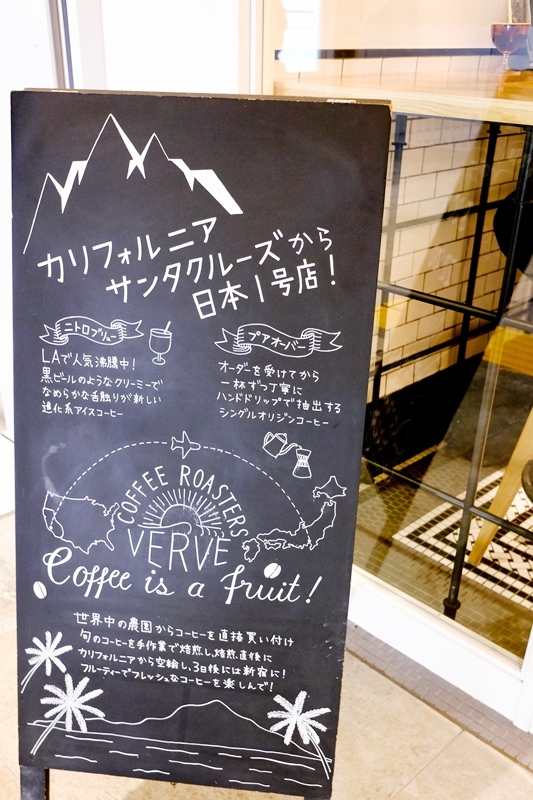 カリフォルニア
サンタクルーズから
日本1号店!
ニトロブリュー
LAで人気沸騰中!
黒ビールのようなクリーミーで
なめらかな舌触りが新しい
進化系アイスコーヒー
プアオーバー
オーダーを受けてから
一杯ずつ丁寧に
ハンドドリップで抽出する
シングルオリジンコーヒー
COFFEE ROASTERS
VERVE
Coffee is a fruit!
世界中の農園からコーヒーを直接買い付け
旬のコーヒーを手作業で焙煎し、焙煎直後に
カリフォルニアから空輸し、3日後には新宿に!
フルーティーでフレッシュなコーヒーを楽しんで!